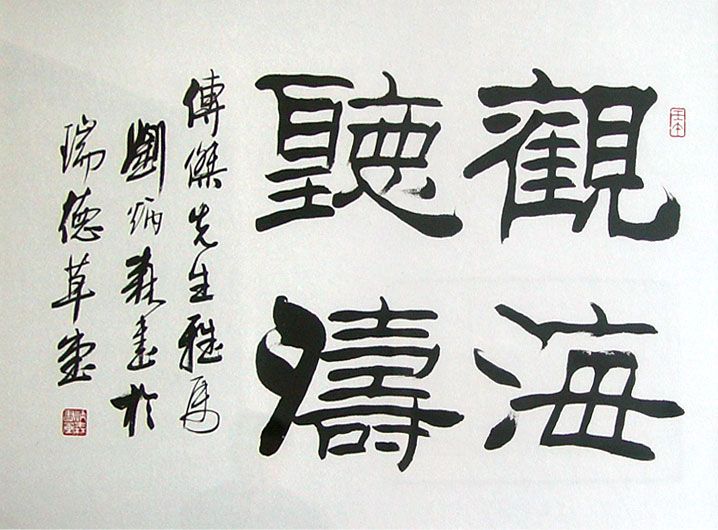 觀海
聽濤
傅傑先生雅屬
劉炳森書於
瑞德草堂